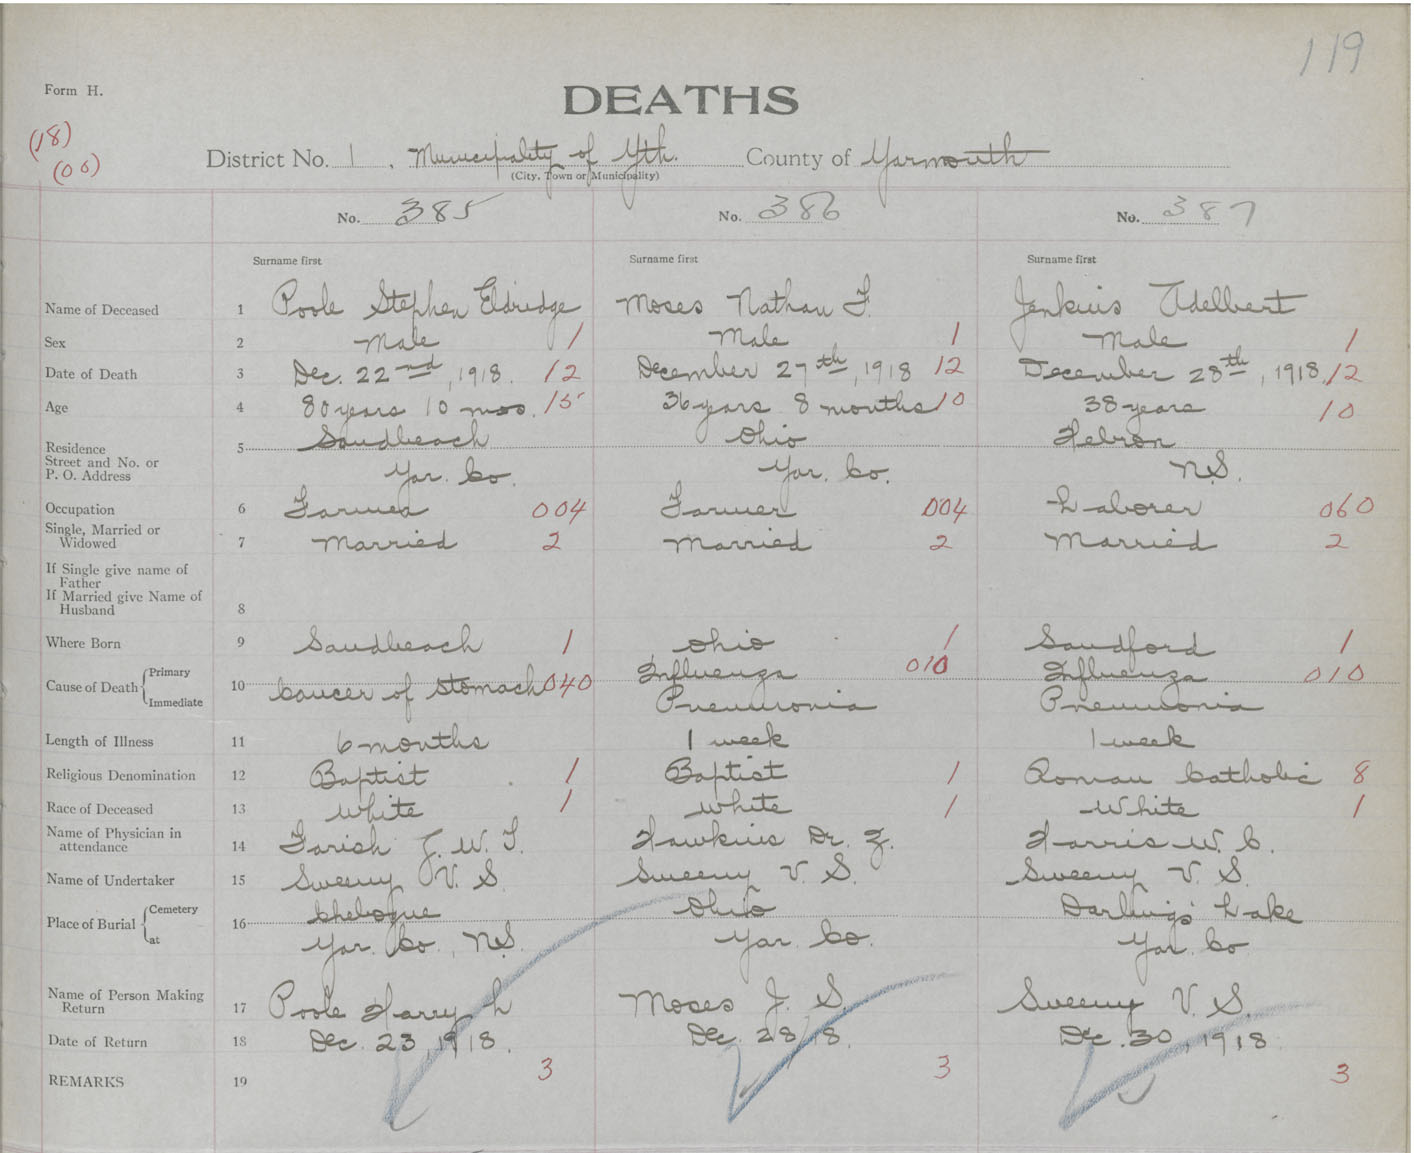 119
Form H.
DEATHS
(18)
(06)
District No. 1, Municipality of Yth. County of Yarmouth
(City, Town or Municipality)
No. 385 No. 386 No. 387
Surname first Surname first Surname first
Name of Deceased 1 Poole Stephen Eldridge Moses Nathan F. Jenkins Adelbert
Sex 2 Male 1 Male 1 Male 1
Date of Death 3 Dec. 22nd, 1918. 12 December 27th, 1918 12 December 28th, 1918. 12
Age 4 80 years 10 mos. 15 36 years 8 months 10 38 years 10
Residence 5 Sandbeach Ohio Hebron
Street and No. or
P. O. Address Yar. Co. Yar. Co. N.S.
Occupation 6 Farmer 004 Farmer 004 Laborer 060
Single, Married or
Widowed 7 Married 2 Married 2 Married 2
If Single give name of
Father
If Married give Name of
Husband 8
Where Born 9 Sandbeach 1 Ohio 1 Sandford 1
Cause of Death Primary 10 Cancer of Stomach 040 Influenza 010 Influenza 010
Immediate Pneumonia Pneumonia
Length of Illness 11 6 months 1 week 1 week
Religious Denomination 12 Baptist 1 Baptist 1 Roman Catholic 8
Race of Deceased 13 White 1 White 1 White 1
Name of Physician in
attendance 14 Farish J. W. T. Hawkins Dr. Z. Harris W. C.
Name of Undertaker 15 Sweeny V. S. Sweeny V. S. Sweeny V. S.
Place of Burial Cemetery 16 Chebogue Ohio Darlings' Lake
at Yar. Co., N.S. Yar. Co. Yar. Co
Name of Person Making
Return 17 Poole Harry L Moses J. S. Sweeny V. S.
Date of Return 18 Dec. 23, 1918. Dec. 28 18. Dec. 30, 1918
REMARKS 19 3 3 3